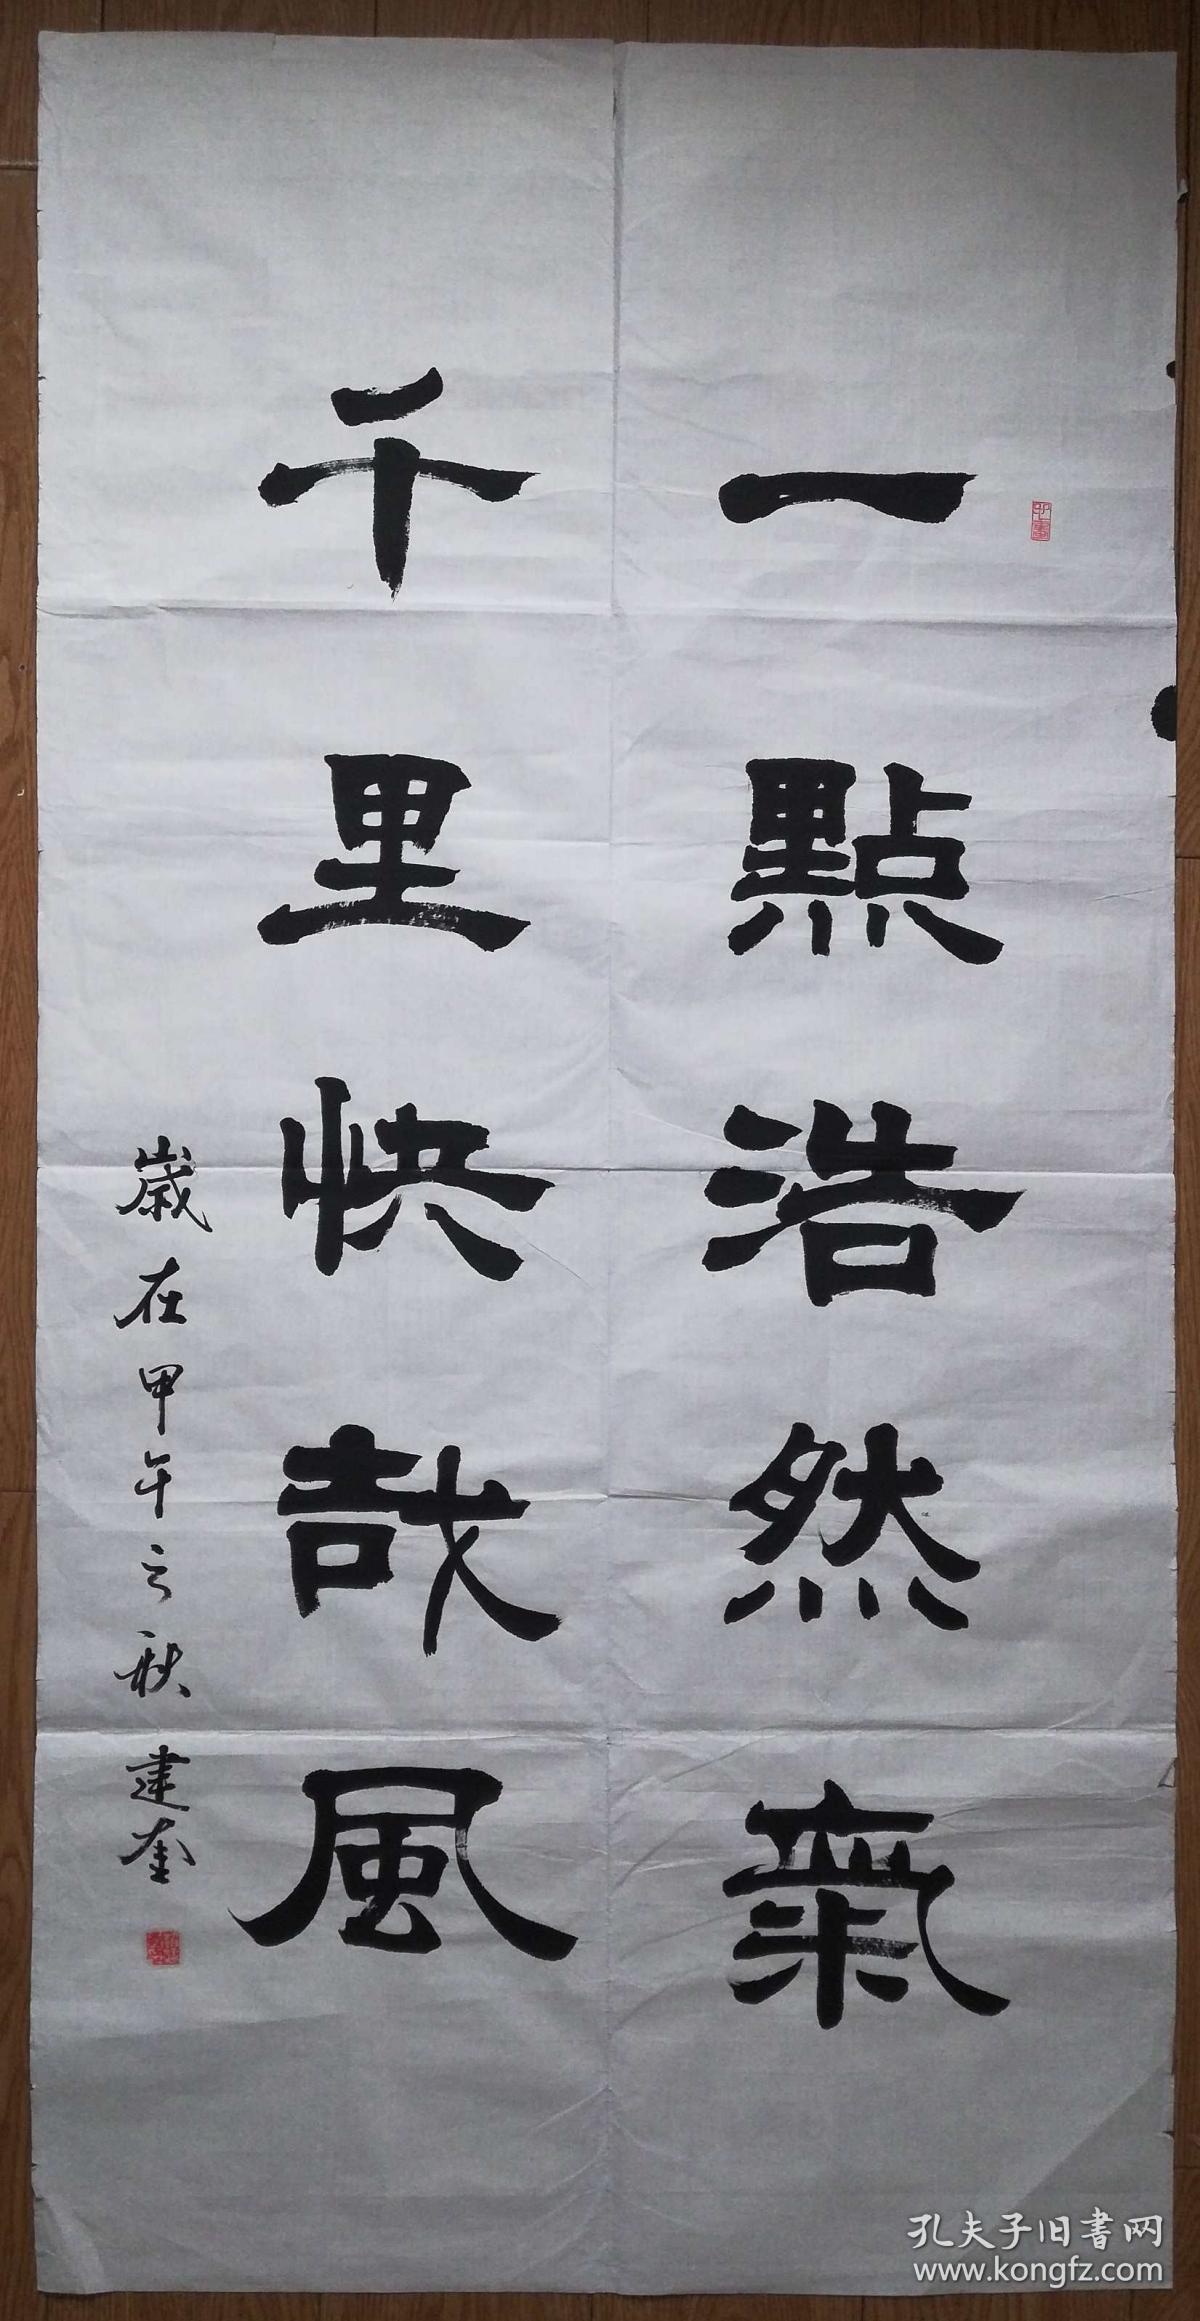 一點浩然氣
千里快哉風
歲在甲午之秋 建奎
孔夫子旧書网
www.kongfz.com